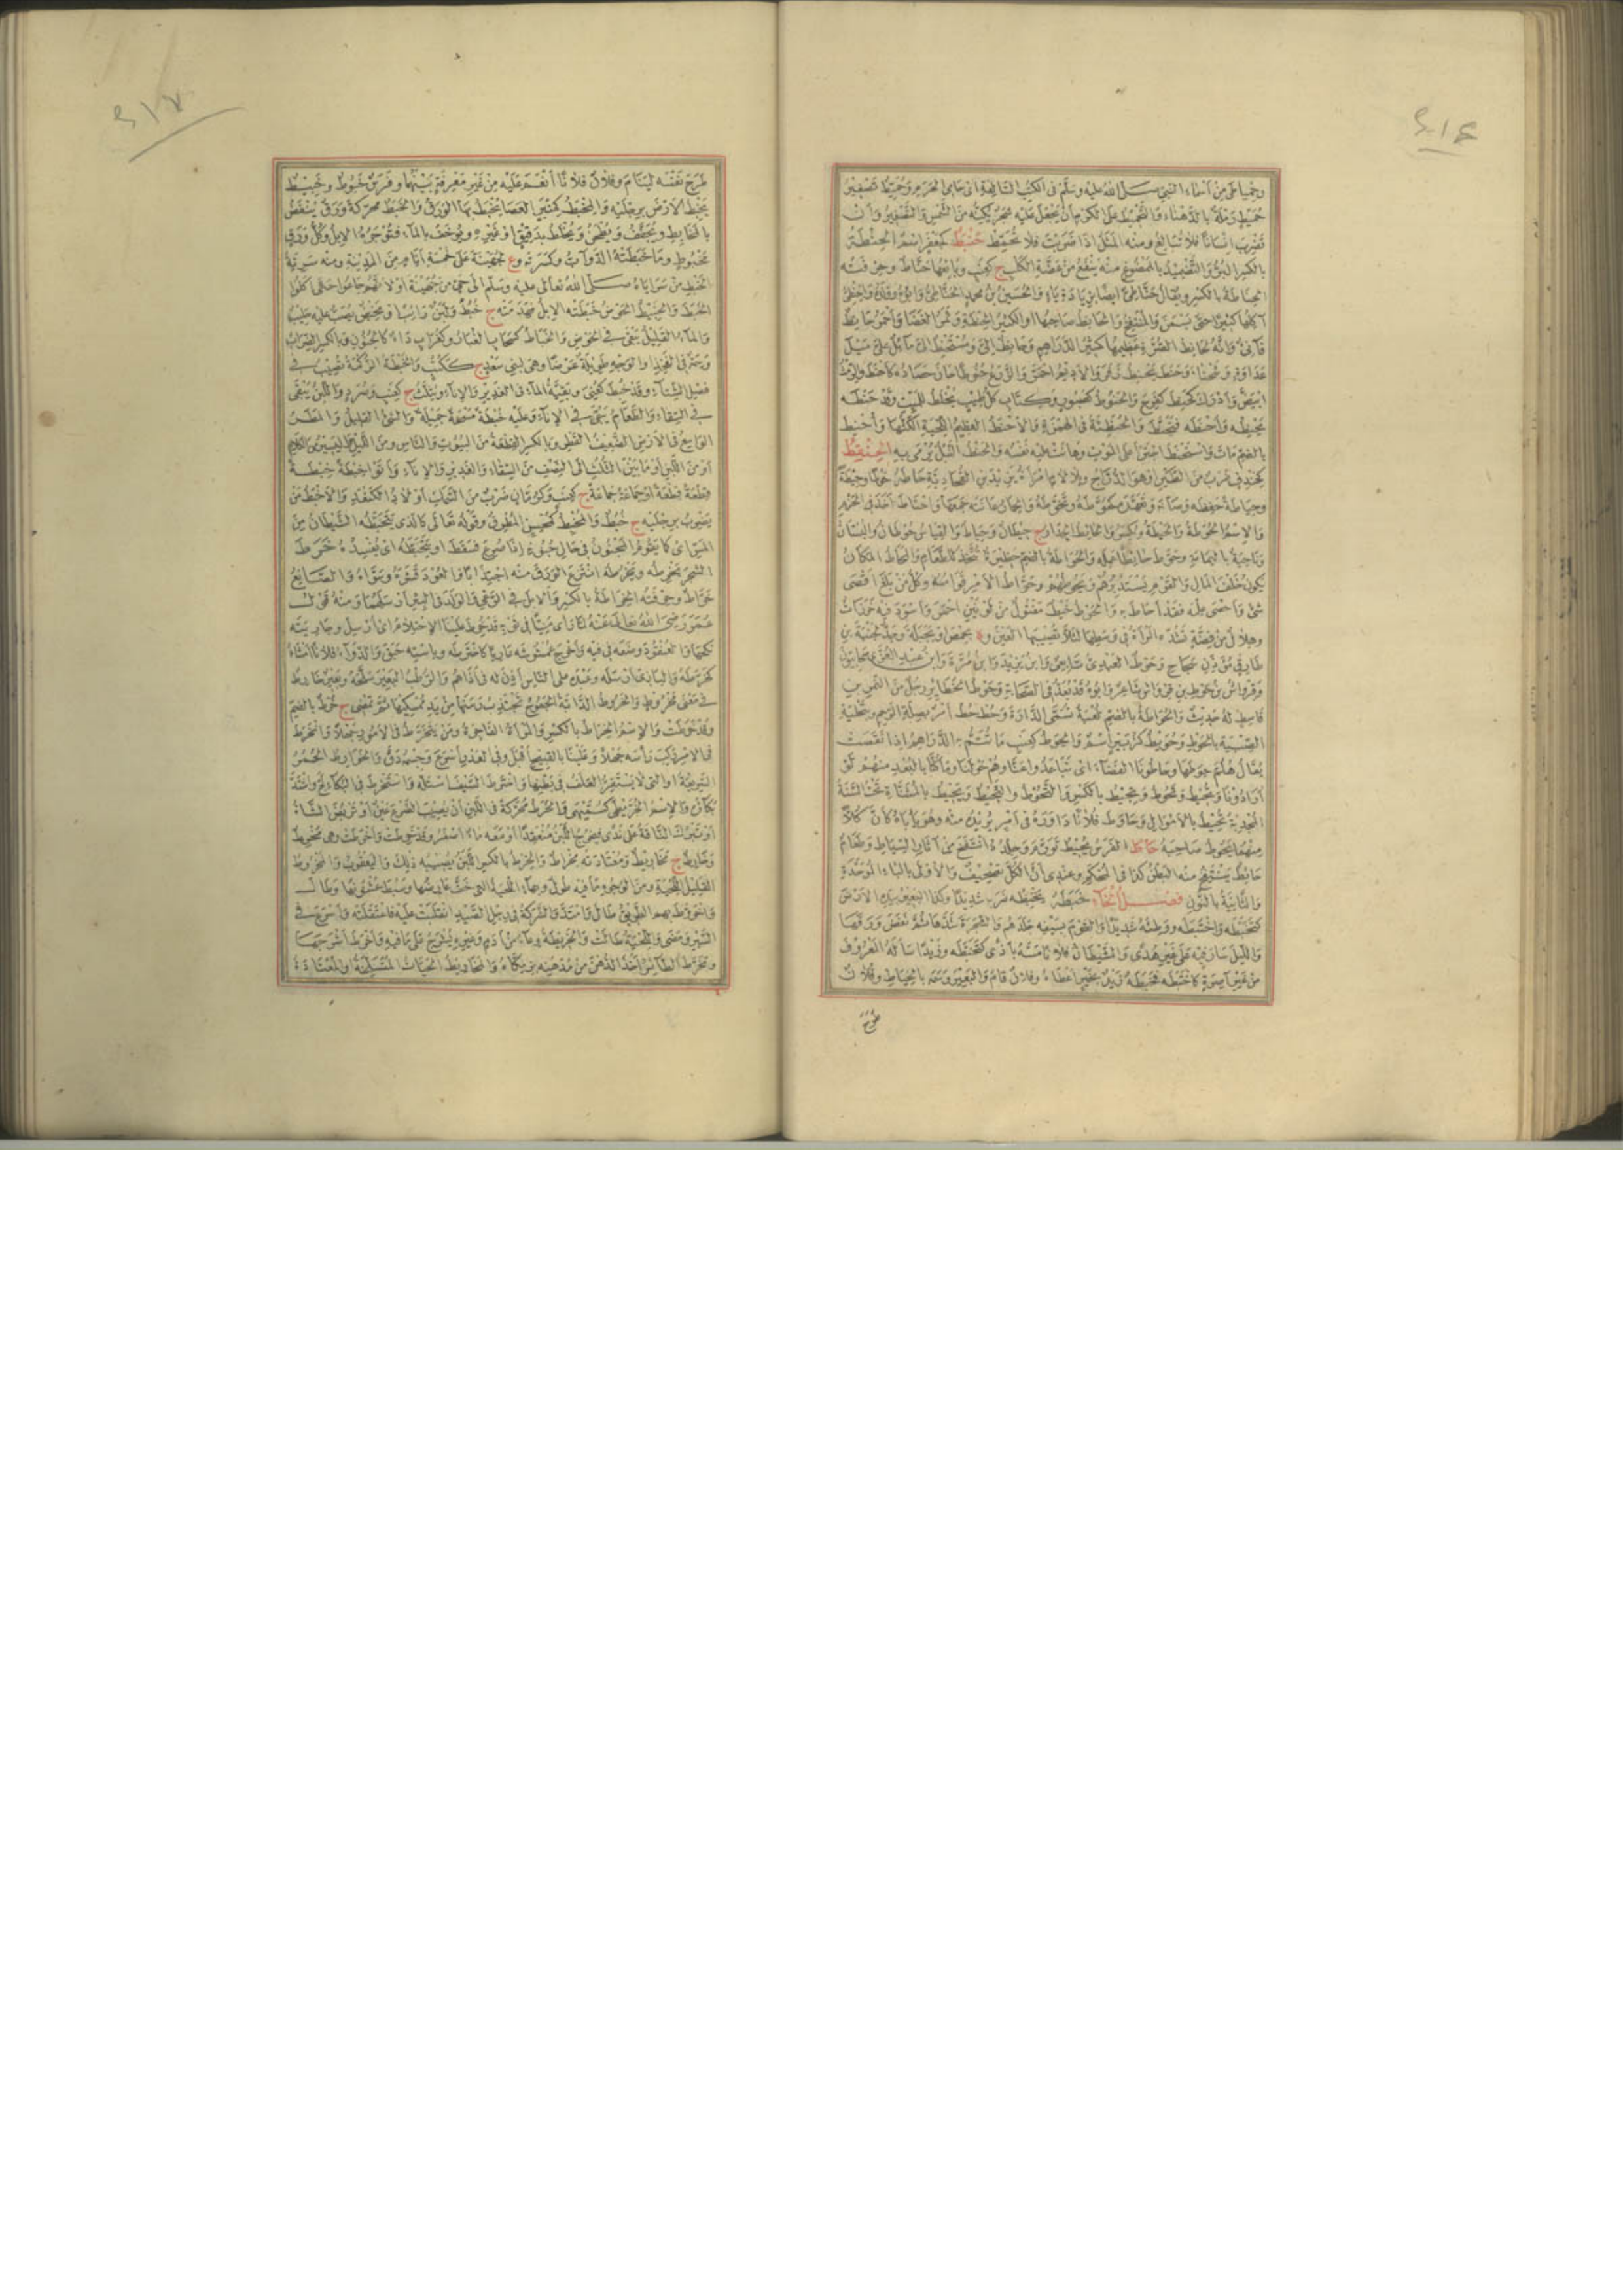 وحمياطى من اسماء النبي صلى الله عليه وسلم فى الكتب السالفة اى حامى الحرم وحميط تصغير
حميط رملة بالدهناء والتحميط على الكرم ان يجعل عليه شجر يكنه من الشمس والتصغير وان
تضرب انسانا فلا تبالغ ومنه المثل اذا ضربت فلا تحمط حنبط كجعفر اسم الحنطة
بالكسر البر والتضميد بالممضوغ منه ينفع من عضة الكلب ج كعنب وبايعها حناط وحرفته
الحناطة بالكسر ويقال حناطى ايضا بزيادة ياء والحسين بن محمد الحناطى وابوه
آكلها كثيرا حتى يسمن والمنتفخ والحانط صاحبها او الكثير الحنطة وثمر الغضا واحمر حانط
قانئ وانه لحانط الصرة عظيمها كثير الدراهم وحانط الى ومستحنط الى مائل على ميل
عداوة وشحناء وحنط يحنط زفر والاديم احمر والزرع حنوطا حان حصاده كاحنط والرمث
ابيض وادرك كحنط كفرح والحنوط كصبور وكتاب كل طيب يخلط للميت وقد حنطه
يحنطه واحنطه فتحنط والحنطئة فى الهمزة والاحنط العظيم اللحية الكثها واحنط
بالضم مات واستحنط اجترأ على الموت وهانت عليه نفسه والحنط النبل يرمى به الحنقط
كخندف ضرب من الطير او هو الدراج وبلا لام امرأة يزيد بن القحادية حاطه حوطا وحيطة
وحياطة حفظه وصانه وتعهده كحوطه وتحوطه والحمار عانته جمعها واحتاط اخذ فى الحزم
والاسم الحوطة والحيطة ويكسر والحائط الجدار ج حيطان وحياط والقياس حوطان والبستان
وناحية باليمامة وحوط حائطا عمله والحواطة بالضم حظيرة تتخذ للطعام والمحاط المكان
يكون خلف المال والقوم يستدير بهم ويحوطهم وحواط الامر قوامه وكل من بلغ اقصى
شئ واحصى علمه فقد احاط به والحوط خيط مفتول من لونين احمر واسود فيه خرزات
وهلال من فضة تشده المرأة فى وسطها لئلا تصيبها العين
وقرواش بن حوط بن قرواش شاعر
قاسط له حديث والحواطة بالضم لعبة تسمى الدارة وحط حط امر بصلة الرحم وتحلية
الصبية بالحوط وحويط كزبير اسم والحوط كعنب ما تتم به الدراهم اذا نقصت
يقال هلم حوطها وحاطونا القصاء اى تباعدوا عنا وهم حولنا وما كنا بالبعد منهم لو
ارادونا وتحيط وتحوط ويحيط بالكسر والتحوط والتحيط ويحيط بالمثناة تحت السنة
المجدبة تحيط بالاموال وحاوط فلانا داوره فى امر يريده منه وهو يأباه كأن كلا
منهما يحوط صاحبه حاط الفرس يحيط
والثانية بالنون فصل الخاء خبطه يخبطه ضربه شديدا وكذا البعير بيده الارض
كتخبطه واختبطه ووطئه شديدا والقوم بسيفه جلدهم والشجرة شدها ثم نفض ورقها
والليل سار فيه على غير هدى والشيطان فلانا مسه باذى كتخبطه وزيدا سأله المعروف
من غير آصرة كاختبطه فخبطه زيد بخير اعطاه وفلان قام والبعير وسمه بالخباط وفلان
طرح
طرح نفسه لينام وفلان فلانا انعم عليه من غير معرفة بينهما وفرس خبوط وخبيط
يخبط الارض برجليه والمخبط كمنبر العصا يخبط بها الورق والخبط محركة ورق ينفض
بالمخابط ويجفف ويطحن ويخلط بدقيق او غيره ويوخف بالماء فتوجره الابل وكل ورق
مخبوط وما خبطته الدواب وكسرته وع لجهينة على خمسة ايام من المدينة ومنه سرية
الخبط من سراياه صلى الله تعالى عليه وسلم الى حى من جهينة او لانهم جاعوا حتى اكلوا
الخبط والخبيط الحوض خبطته الابل فهدمته ج خبط ولبن رائب او مخيض يصب عليه حليب
والماء القليل يبقى فى الحوض والخباط كسحاب الغبار وكغراب داء كالجنون وبالكسر الضراب
وسمة فى الفخذ او الوجه طويلة عرضا وهى لبنى سعد ج ككتب والخبطة الزكمة تصيب فى
فصل الشتاء وقد خبط كعنى وبقية الماء فى الغدير والاناء ويثلث ج كعنب وصرد واللبن يبقى
فى السقاء والطعام يبقى فى الاناء وعليه خبطة مسحة جميلة والشئ القليل والمطر
الواسع فى الارض الضعيف القطر وبالكسر القطعة من البيوت والناس ومن الليل
او من اللبن او ما بين الثلث الى النصف من السقاء والغدير والاناء واتوا خبطة خبطة
قطعة قطعة او جماعة جماعة ج كعنب وكرمان ضرب من السمك اولاد الكنعد والاخبط من
يضرب برجليه ج خبط والمخبط كمحسن المطرق وقوله تعالى كالذى يتخبطه الشيطان من
المس اى كما يقوم المجنون فى حال جنونه اذا صرع فسقط او يتخبطه اى يفسده خرط
الشجر يخرطه ويخرطه انتزع الورق منه اجتذابا والعود قشره وسواه والصانع
خراط وحرفته الخراطة بالكسر والابل فى الرعى والدلو فى البئر ارسلهما ومنه قول
عمر رضى الله تعالى عنه لما رأى منيا فى ثوبه قد خرط علينا الاحتلام اى ارسل وجاريته
نكحها والعنقود وضعه فى فيه واخرج عمشوشه عاريا كاخترطه وباسته حبق والدواء فلانا امشاه
كخرطه والبازى ارسله وعبده على الناس اذن له فى اذاهم والرطب البعير سلحه وبعير خارط
فى معنى مخروط والخروط الدابة الجموح تجتذب رسنها من يد ممسكها ثم تمضى ج خرط بالضم
وقد خرطت والاسم الخراط بالكسر والمرأة الفاجرة ومن يتخرط فى الامور جهلا وانخرط
فى الامر ركب رأسه جهلا وعلينا بالقبيح اقبل وفى العدو اسرع وجسمه دق والخوارط الحمر
السريعة او التى لا يستقر العلف فى بطنها واخترط السيف استله واستخرط فى البكاء لج واشتد
بكاؤه والاسم الخريطى كسميهى والخرط محركة فى اللبن ان يصيب الضرع عين او تربض الشاة
او تبرك الناقة على ندى فيخرج اللبن منعقدا او معه ماء اصفر وقد خرطت واخرطت وهى مخرط
وخارط ج مخاريط ومعتادته مخراط والخرط بالكسر اللبن يصيبه ذلك واليعقوب والمخروط
القليل اللحية ومن الوجوه ما فيه طول
واخروط بهم الطريق طال وامتد والشركة فى رجل الصيد انقلبت عليه فاعتقلته واسرع فى
السير ومضى واللحية طالت والخريطة وعاء من ادم وغيره يشرج على ما فيه واخرط اشرجها
وتخرط الطائر اخذ الدهن من مدهنه بزمكاه والمخاريط الحيات المنسلخة والمعتادة